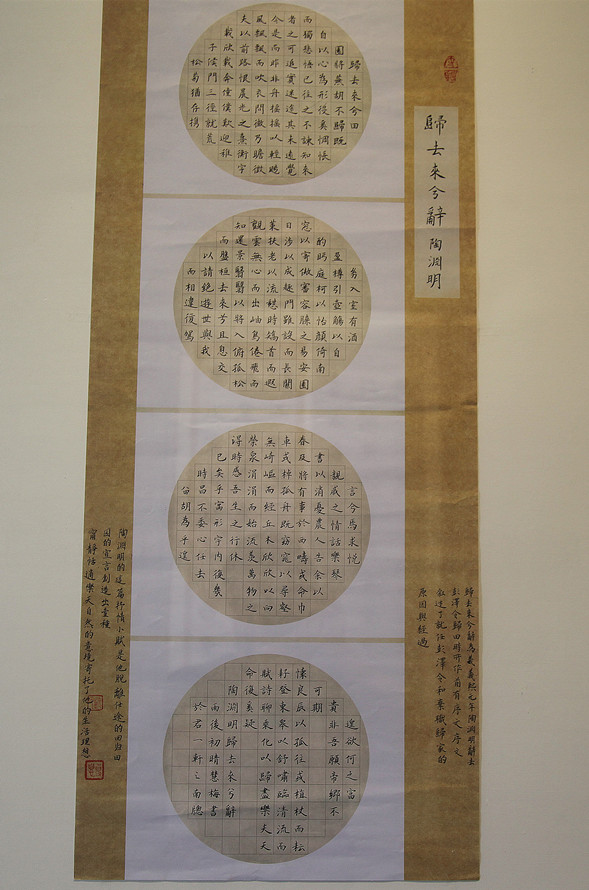 歸去來兮辭 陶淵明
歸去來兮辭為義熙元年陶淵明辭去
彭澤令歸田時所作前有序文序文
敘述了就任彭澤令和棄職歸家的
原因與經過
歸去來兮田
園將蕪胡不歸既
自以心為形役奚惆悵
而獨悲悟已往之不諫知來
者之可追實迷途其未遠覺
今是而昨非舟搖搖以輕颺
風飄飄而吹衣問乃瞻
夫以前路恨晨光之熹衡宇
載欣載奔僮僕歡迎稚
子候門三徑就荒
松菊猶存攜
幼入室有酒
盈樽引壺觴以自
酌眄庭柯以怡顏倚南
窗以寄傲審容膝之易安園
日涉以成趣門雖設而長關
策扶老以流憩時矯首而遐
觀雲無心而出岫鳥倦飛而
知還景翳翳以將入孤松
而盤桓去來兮且息交
以請絕遊世與我
而相違復駕
言兮焉求悅
親戚之情話樂琴
書以消憂農人告余以
春及將有事於西疇或命巾
車或棹孤舟既窈窕以尋壑
崎嶇而經丘木欣欣以向
榮泉涓涓而始流羨萬物之
得時感吾生之行休
已矣乎寓形宇內復幾
時曷不委心任去
留胡為乎遑
遑欲何之富
貴非吾願帝鄉不
可期
懷良辰以孤往或植杖而耘
耔登東皋以舒嘯臨清流而
賦詩聊乘化以歸盡樂夫天
命復奚疑
陶淵明歸去來兮辭
雨後初晴慧梅書
於君一軒之南牕
陶淵明的這篇抒情小賦是他脫離仕途的回歸田
園的宣言創造出一種
寧靜恬適樂天自然的意境寄托了他的生活理想